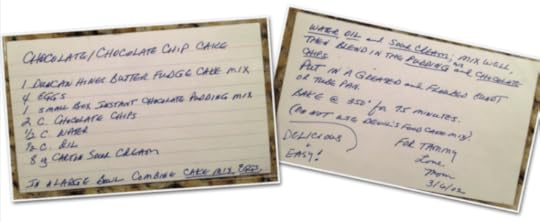 CHOCOLATE/CHOCOLATE CHIP CAKE
1 DUNCAN HINES BUTTER FUDGE CAKE MIX
4 EGGS
1 SMALL BOX INSTANT CHOCOLATE PUDDING MIX
2 C. CHOCOLATE CHIPS
1/2 C. WATER
1/2 C. OIL
8 oz CARTON SOUR CREAM
IN A LARGE BOWL COMBINE CAKE MIX, EGGS,
WATER, OIL and SOUR CREAM; MIX WELL,
THEN BLEND IN THE PUDDING and CHOCOLATE
CHIPS
PUT IN A GREASED and FLOURED BUNDT
OR TUBE PAN.
BAKE @ 350° for 75 MINUTES.
(DO NOT USE DEVIL'S FOOD CAKE MIX)
DELICIOUS
EASY!
FOR TAMMY
Love,
Mom
3/6/02